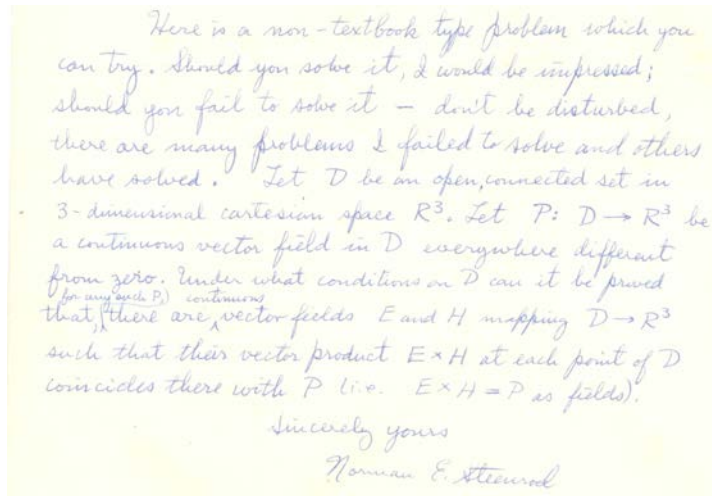 Here is a non-textbook type problem which you
can try. Should you solve it, I would be impressed;
should you fail to solve it — don't be disturbed,
there are many problems I failed to solve and others
have solved. Let D be an open, connected set in
3-dimensional cartesian space R³. Let P: D → R³ be
a continuous vector field in D everywhere different
from zero. Under what conditions on D can it be proved
for any such P,) continuous
that, (there are vector fields E and H mapping D → R³
such that their vector product E × H at each point of D
coincides there with P (i.e. E × H = P as fields).
Sincerely yours
Norman E. Steenrod